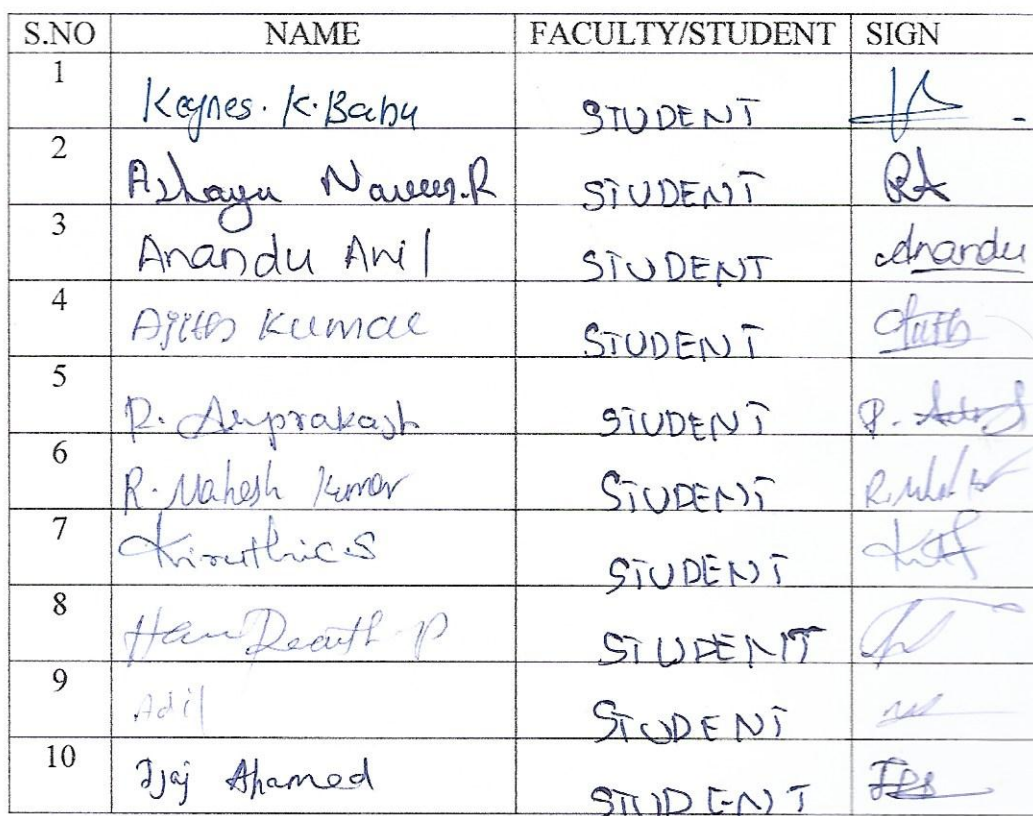 S.NO NAME FACULTY/STUDENT SIGN
1 Keynes. K. Babu STUDENT
2 Naveen.R STUDENT RA
3 Anandu Anil STUDENT Anandu
4 Ajith Kumar STUDENT Ajith
5 R. STUDENT R.
6 R. Mahesh Kumar STUDENT
7 Kiruthic.S STUDENT
8 P STUDENT
9 Adil STUDENT
10 Ijaj Ahamed STUDENT